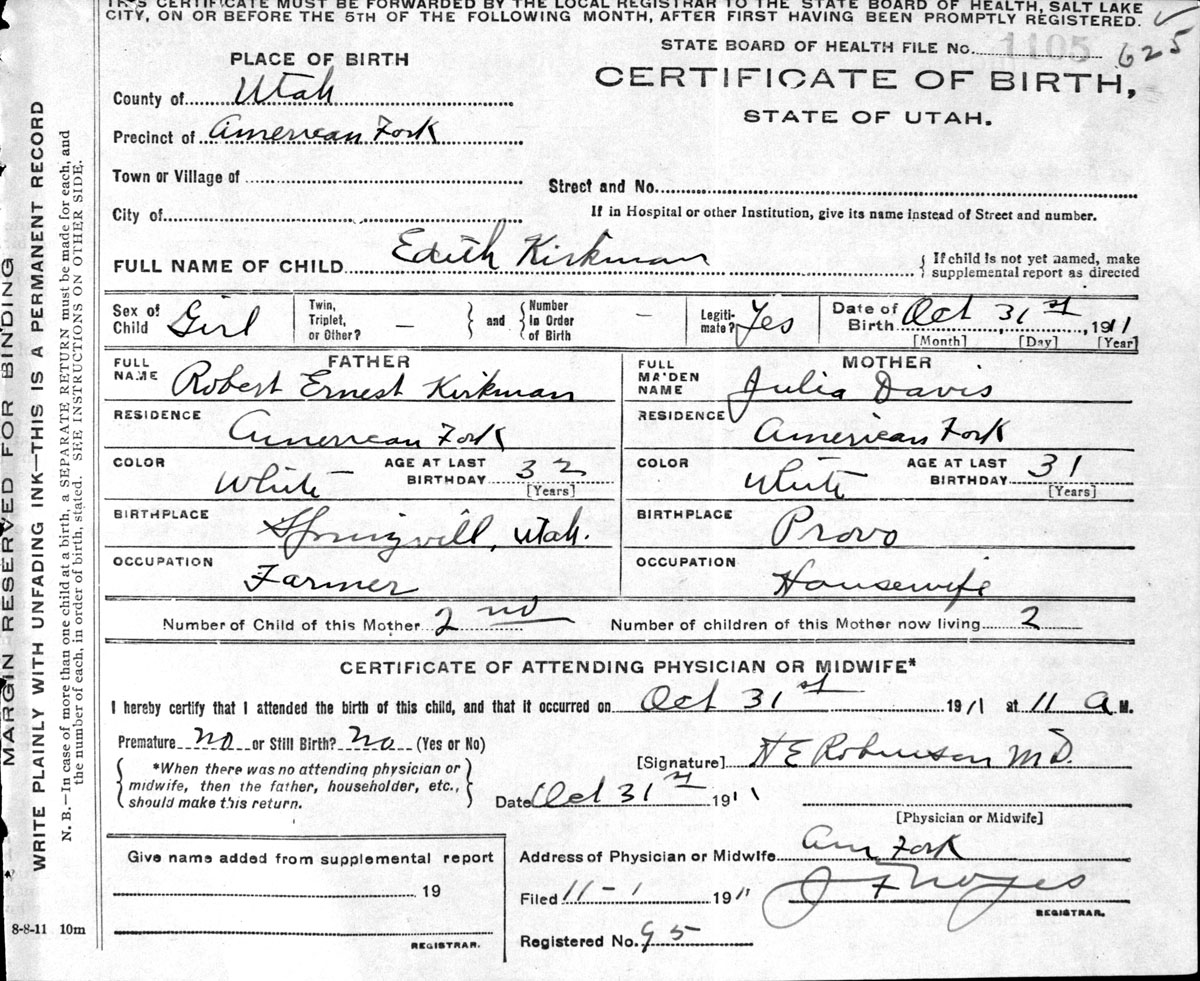 THIS CERTIFICATE MUST BE FORWARDED BY THE LOCAL REGISTRAR TO THE STATE BOARD OF HEALTH, SALT LAKE
CITY, ON OR BEFORE THE 5TH OF THE FOLLOWING MONTH, AFTER FIRST HAVING BEEN PROMPTLY REGISTERED.
STATE BOARD OF HEALTH FILE No. 1105 625
PLACE OF BIRTH
CERTIFICATE OF BIRTH,
STATE OF UTAH.
County of Utah
Precinct of American Fork
Town or Village of
Street and No.
City of
If in Hospital or other Institution, give its name instead of Street and number.
FULL NAME OF CHILD Edith Kirkman { If child is not yet named, make
supplemental report as directed
Sex of Child Girl
Twin, Triplet, or Other? —
and { Number In Order of Birth —
Legiti-mate? Yes
Date of Birth Oct 31st, 1911
[Month] [Day] [Year]
FATHER
FULL NAME Robert Ernest Kirkman
RESIDENCE American Fork
COLOR White AGE AT LAST BIRTHDAY 32
[Years]
BIRTHPLACE Springvill, Utah.
OCCUPATION Farmer
MOTHER
FULL MA'DEN NAME Julia Davis
RESIDENCE American Fork
COLOR White AGE AT LAST BIRTHDAY 31
[Years]
BIRTHPLACE Provo
OCCUPATION Housewife
Number of Child of this Mother 2nd Number of children of this Mother now living 2
CERTIFICATE OF ATTENDING PHYSICIAN OR MIDWIFE*
I hereby certify that I attended the birth of this child, and that it occurred on Oct 31st 1911 at 11 A M.
Premature no or Still Birth? no (Yes or No)
{ *When there was no attending physician or
midwife, then the father, householder, etc.,
should make this return. }
[Signature] H E Robinson M D.
Date Oct 31st 1911
[Physician or Midwife]
Give name added from supplemental report
19
REGISTRAR.
Address of Physician or Midwife Am Fork
Filed 11-1 1911 J F Noyes
REGISTRAR.
Registered No. 95
8-8-11 10m
MARGIN RESERVED FOR BINDING
WRITE PLAINLY WITH UNFADING INK—THIS IS A PERMANENT RECORD
N. B.—In case of more than one child at a birth, a SEPARATE RETURN must be made for each, and
the number of each, in order of birth, stated. SEE INSTRUCTIONS ON OTHER SIDE.